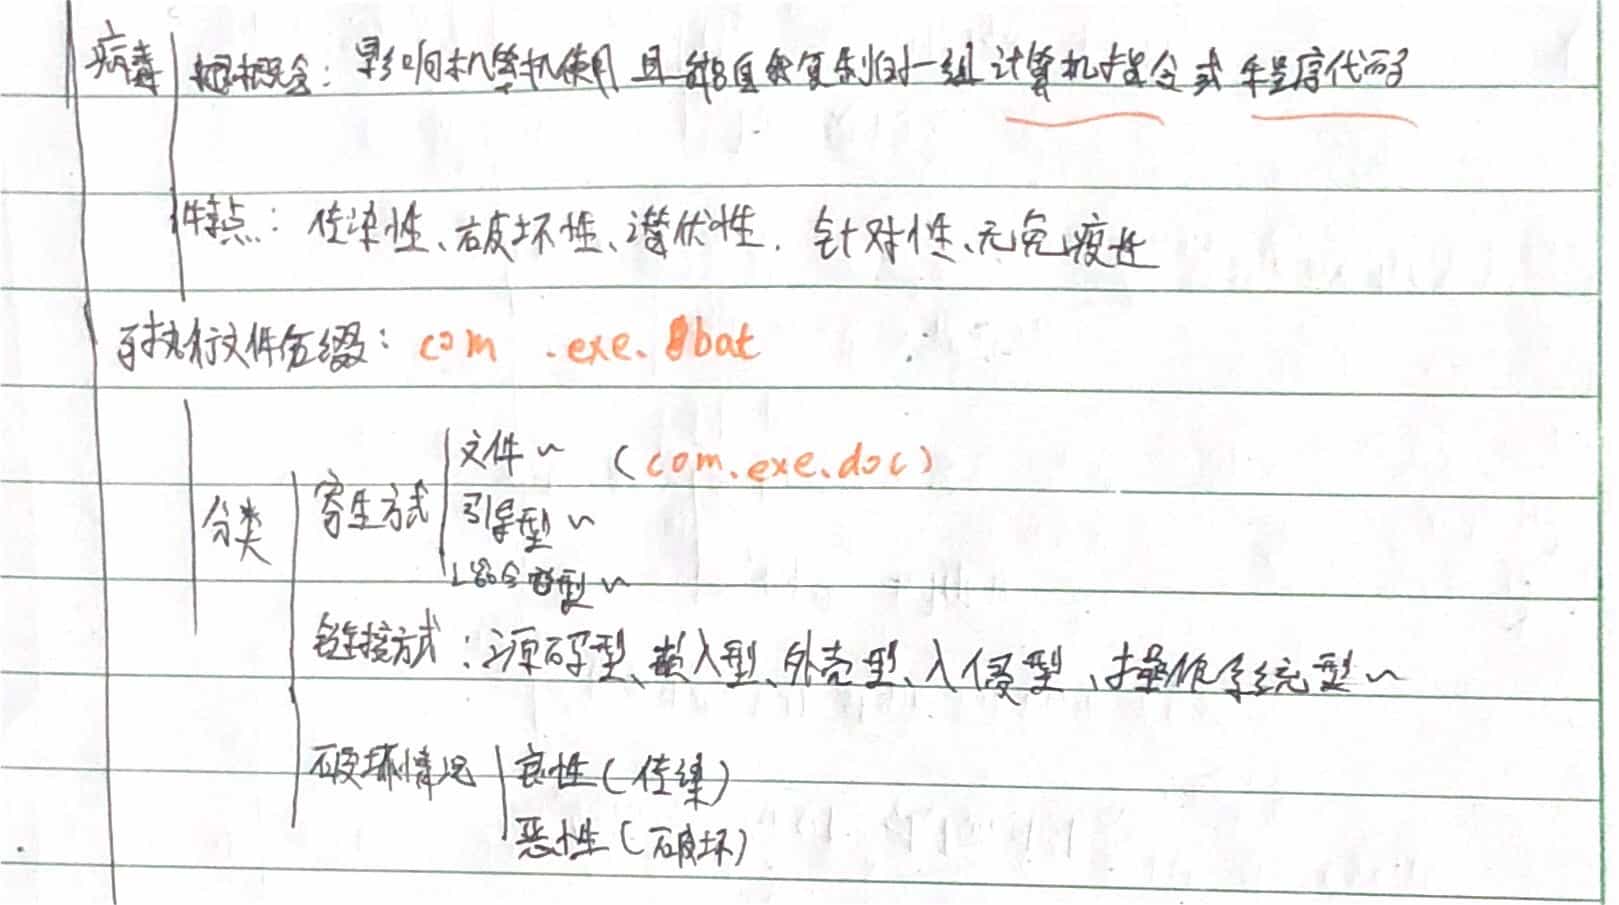 病毒 概念：影响机算机使用且能自我复制的一组计算机指令或程序代码
特点：传染性、破坏性、潜伏性、针对性、无免疫性
可执行文件后缀：com .exe. bat
文件~ (com.exe.doc)
分类 寄生方式 引导型~
混合型~
链接方式：源码型、嵌入型、外壳型、入侵型、操作系统型~
破坏情况 良性(传染)
恶性(破坏)